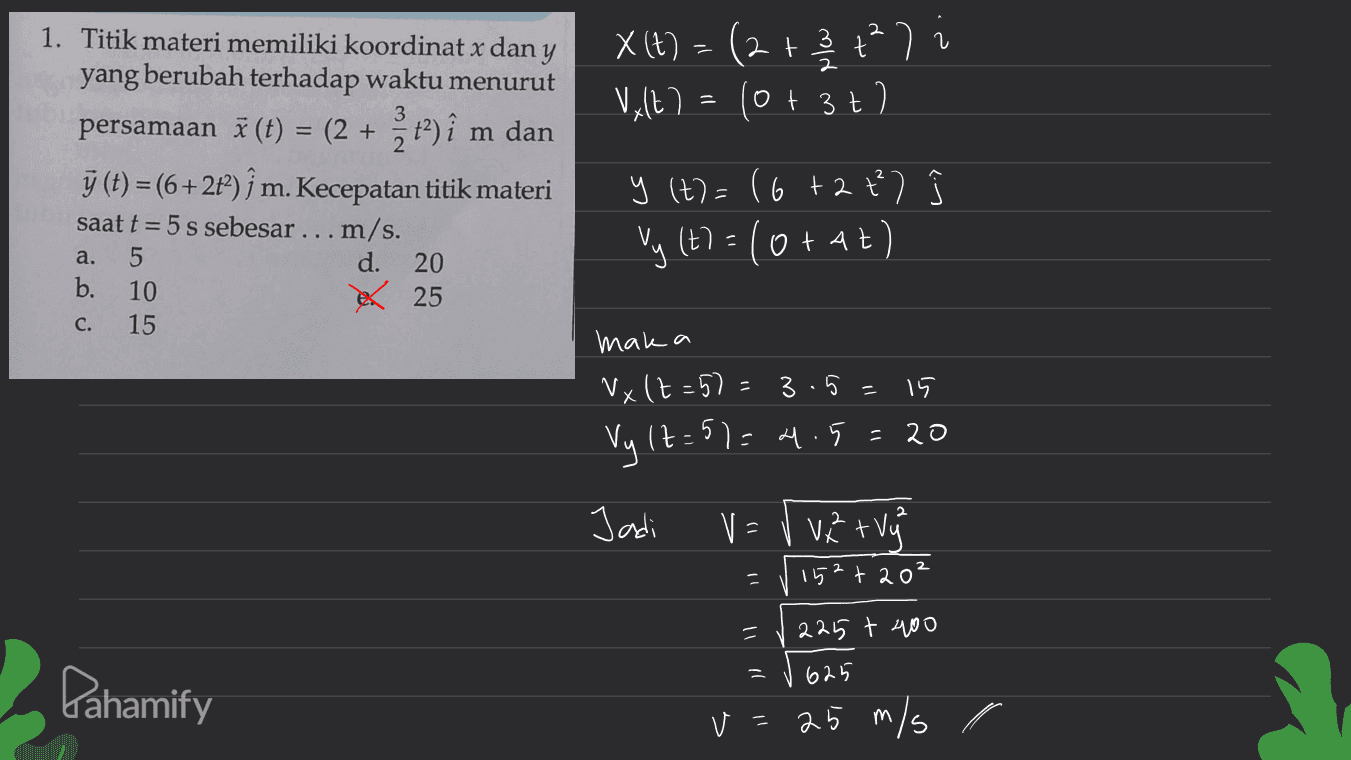 1. Titik materi memiliki koordinat x dan y
yang berubah terhadap waktu menurut
persamaan x̄ (t) = (2 + 3/2 t²) î m dan
ȳ (t) = (6 + 2t²) ĵ m. Kecepatan titik materi
saat t = 5 s sebesar . . . m/s.
a. 5
b. 10
c. 15
d. 20
e. 25
x(t) = (2 + 3/2 t²) i
Vx(t) = (0 + 3t)
y (t) = (6 + 2t²) ĵ
Vy (t) = (0 + 4t)
maka
Vx (t = 5) = 3 . 5 = 15
Vy (t = 5) = 4 . 5 = 20
Jadi V = √Vx² + Vy²
= √15² + 20²
= √225 + 400
= √625
v = 25 m/s
Pahamify